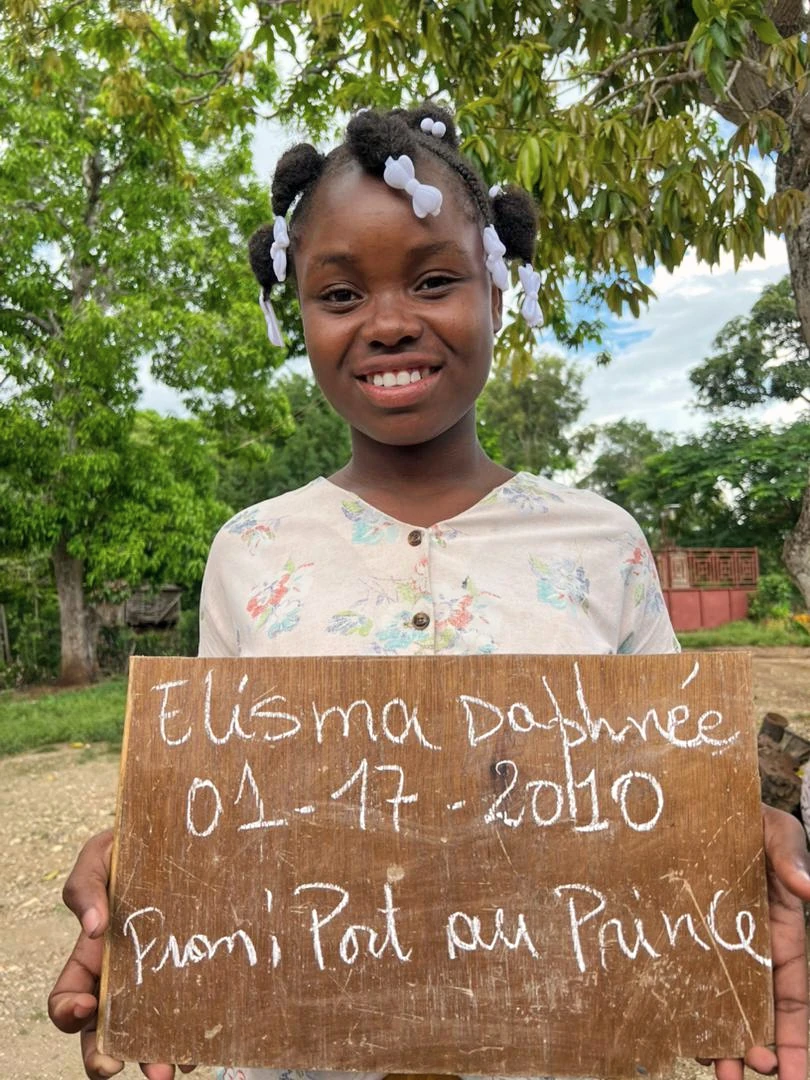 Elisma Daphnée
01-17-2010
From: Port au Prince